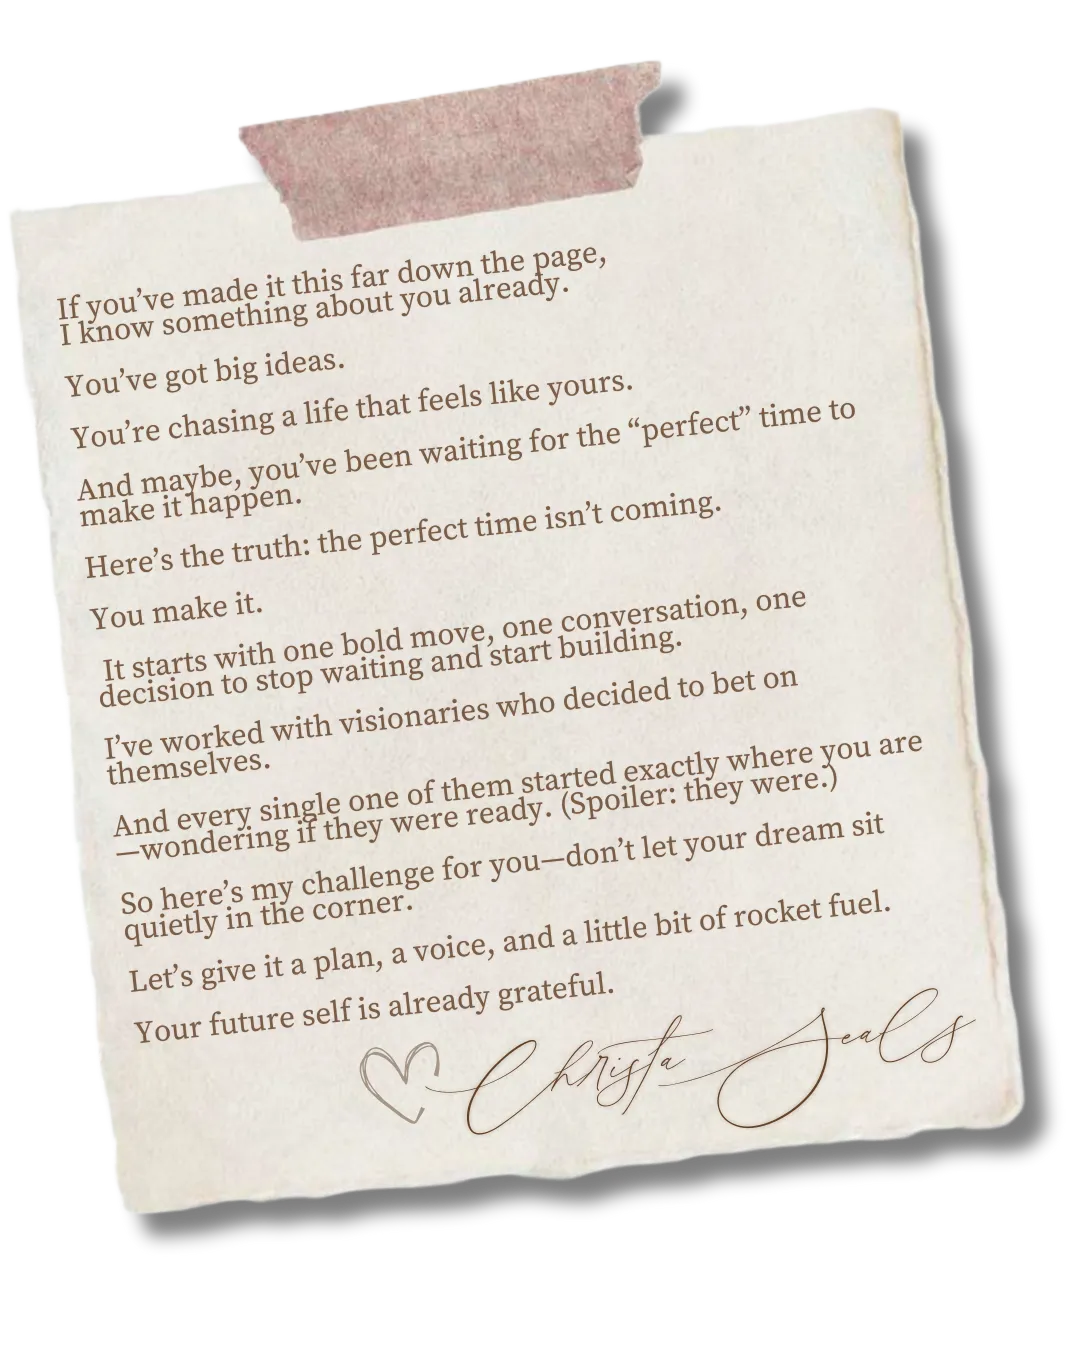 If you’ve made it this far down the page,
I know something about you already.
You’ve got big ideas.
You’re chasing a life that feels like yours.
And maybe, you’ve been waiting for the “perfect” time to
make it happen.
Here’s the truth: the perfect time isn’t coming.
You make it.
It starts with one bold move, one conversation, one
decision to stop waiting and start building.
I’ve worked with visionaries who decided to bet on
themselves.
And every single one of them started exactly where you are
—wondering if they were ready. (Spoiler: they were.)
So here’s my challenge for you—don’t let your dream sit
quietly in the corner.
Let’s give it a plan, a voice, and a little bit of rocket fuel.
Your future self is already grateful.
Christa Seals